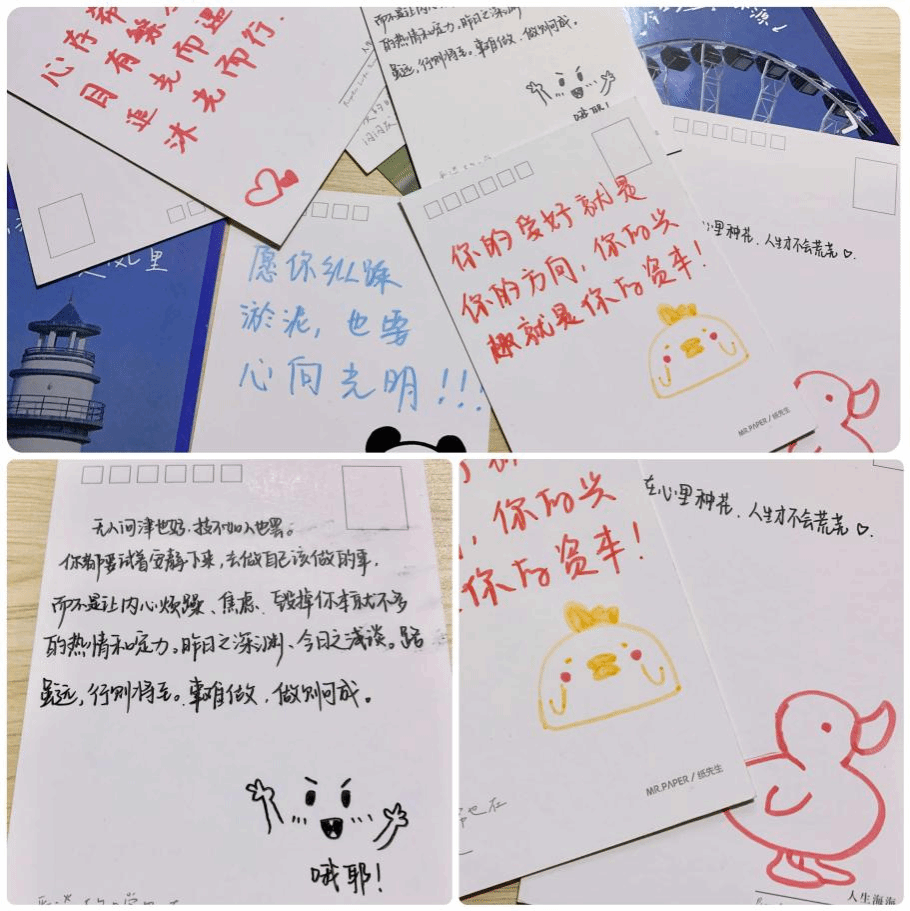 心存希
目有繁
追光而遇
沐光而行.
而不是让内心烦躁、焦虑、毁掉你本就不多
的热情和定力。昨日之深渊、今日之浅谈。路
虽远，行则将至。事难做、做则可成。
哦耶！
源
风里
愿你纵踩
淤泥，也要
心向光明!!!
你的爱好就是
你的方向，你的兴
趣就是你的资本！
MR.PAPER/纸先生
心里种花、人生才不会荒芜♡.
无人问津也好，技不如人也罢。
你都要试着安静下来，去做自己该做的事，
而不是让内心烦躁、焦虑、毁掉你本就不多
的热情和定力。昨日之深渊、今日之浅谈。路
虽远，行则将至。事难做、做则可成。
哦耶！
，你的兴
你的资本！
MR.PAPER/纸先生
也在
在心里种花、人生才不会荒芜♡.
人生海海